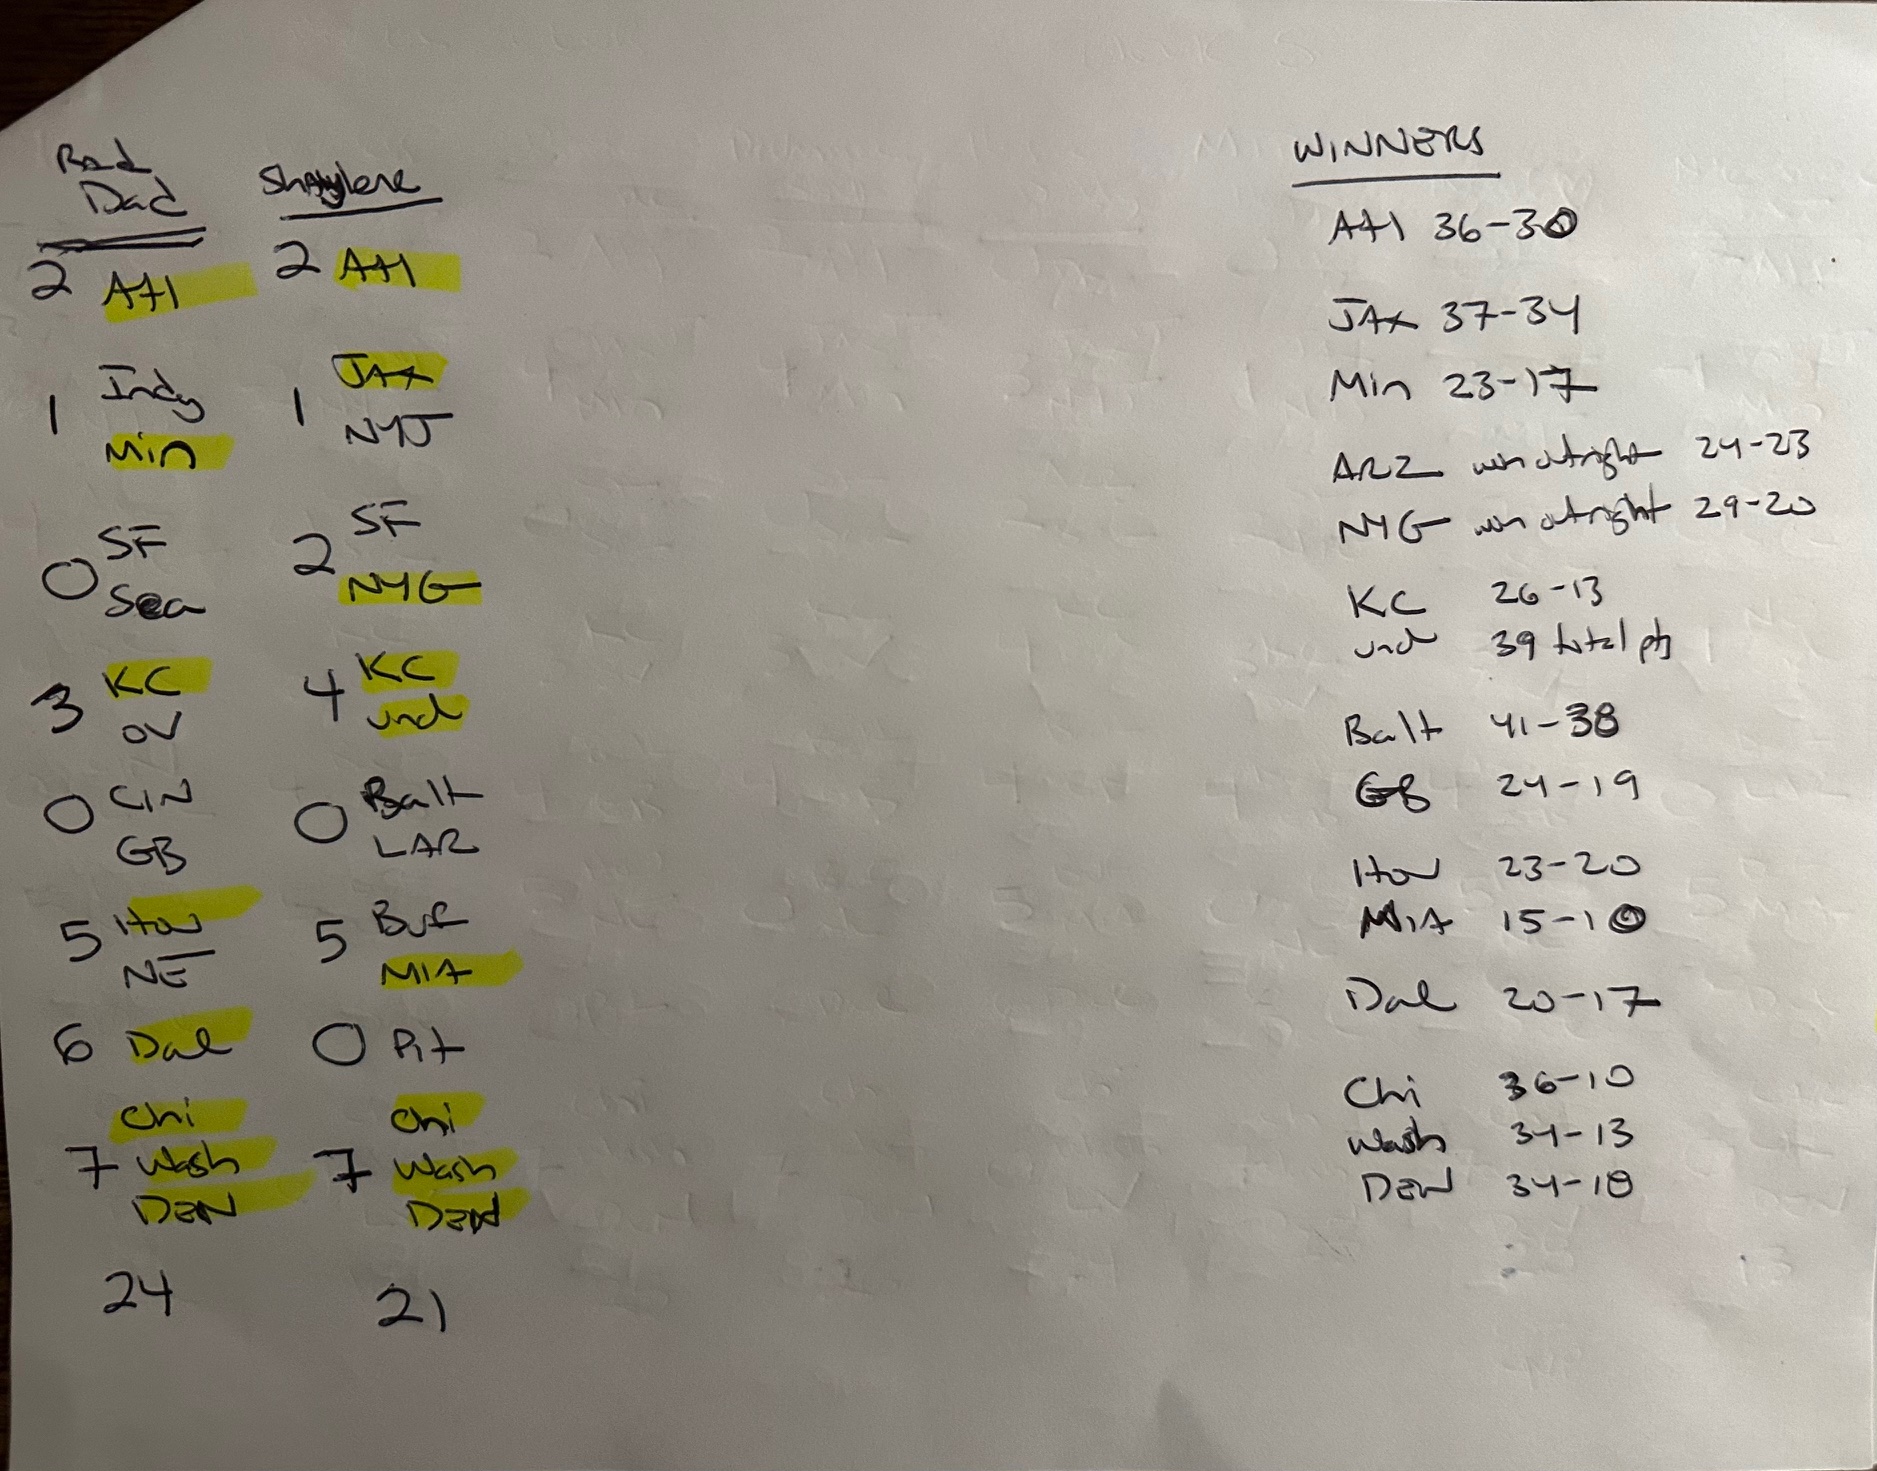 Rad
Dad
2 Atl
1 Indy
Min
0 SF
Sea
3 KC
OV
0 CIN
GB
5 Hou
NE
6 Dal
Chi
7 Wash
DEN
24
Shaylene
2 Atl
JAX
1 NYJ
SF
2 NYG
4 KC
und
0 Balt
LAR
5 Buf
MIA
0 Pit
Chi
7 Wash
DEN
21
WINNERS
Atl 36-30
JAX 37-34
Min 23-17
ARZ win outright 24-23
NYG win outright 29-20
KC 26-13
und 39 total pts
Balt 41-38
GB 24-19
Hou 23-20
MIA 15-10
Dal 20-17
Chi 36-10
Wash 34-13
DEN 34-18